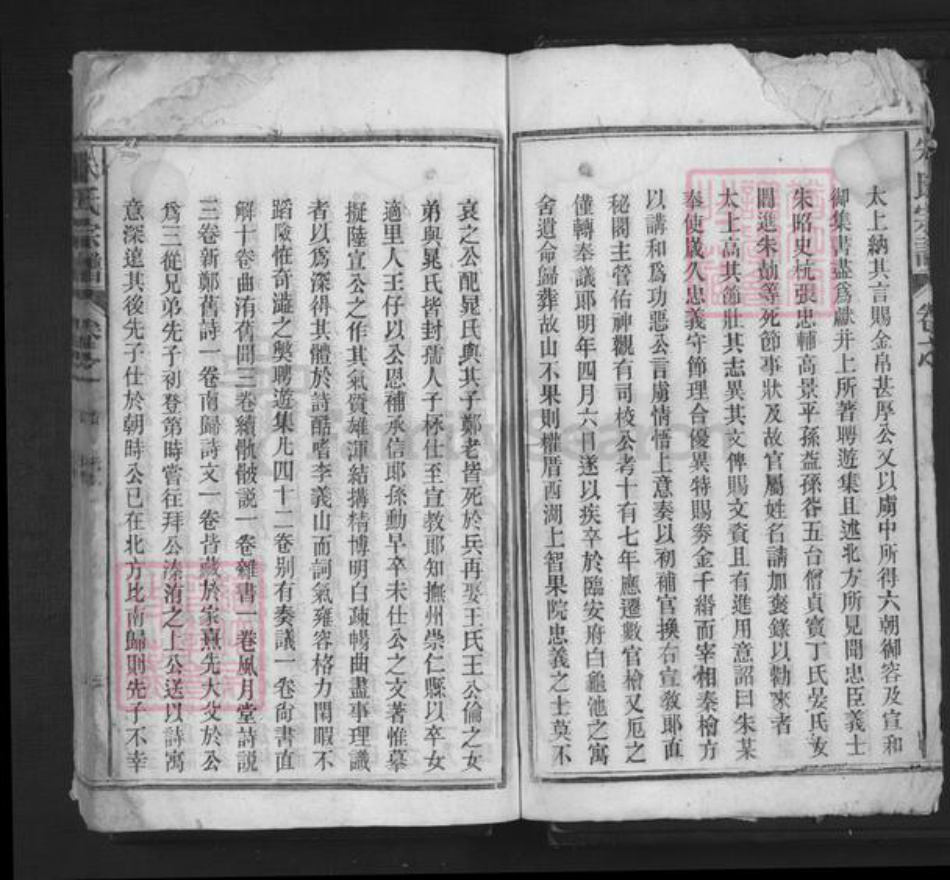 太上納其言賜金帛甚厚公又以虜中所得六朝御容及宣和
御集書盡爲獻并上所著聘遊集且述北方所見聞忠臣義士
朱昭史杭張忠輔高景平孫益孫谷五台僧貞寶丁氏晏氏女
閻進朱勣等死節事狀及故官屬姓名請加褒錄以勸來者
太上高其節壯其志異其文俾賜文資且有進用意詔曰朱某
奉使歲久忠義守節理合優異特賜券金千緡而宰相秦檜方
以講和爲功惡公言虜情悟上意奏以初補官換右宣教郎直
秘閣主管佑神觀有司校公考十有七年應遷數官檜又厄之
僅轉奉議郎明年四月六日遂以疾卒於臨安府白龜池之寓
舍遺命歸葬故山不果則權厝西湖上智果院忠義之士莫不
哀之公配晁氏與其子鄭老皆死於兵再娶王氏王公倫之女
弟與晁氏皆封孺人子林仕至宣教郎知撫州崇仁縣以卒女
適里人王仔以公恩補承信郎孫勳早卒未仕公之文著惟慕
擬陸宣公之作其氣質雄渾結搆精博明白疎暢曲盡事理識
者以爲深得其體於詩酷嗜李義山而詞氣雍容格力閒暇不
蹈險怪奇澁之獘聘遊集凡四十二卷別有奏議一卷尙書直
解十卷曲洧舊聞三卷續骫骳説一卷雜書一卷風月堂詩説
三卷新鄭舊詩一卷南歸詩文一卷皆藏於家熹先大父於公
爲三從兄弟先子初登第時嘗往拜公溱洧之上公送以詩寓
意深遠其後先子仕於朝時公已在北方比南歸則先子不幸
氏宗譜